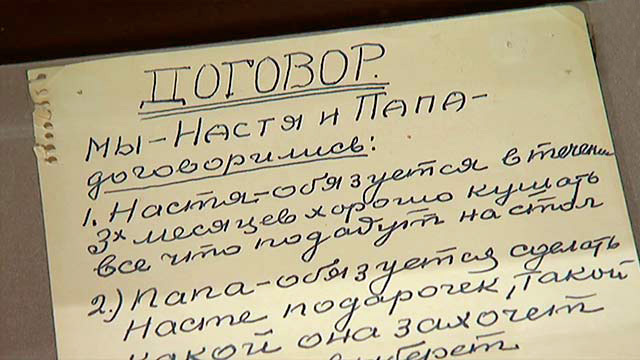 ДОГОВОР.
МЫ-НАСТЯ И ПАПА-
договорились:
1. Настя-обязуется в течени
3х месяцев хорошо кушать
все что подадут на стол
2.) Папа-обязуется сделать
Насте подарочек, такой
какой она захочет